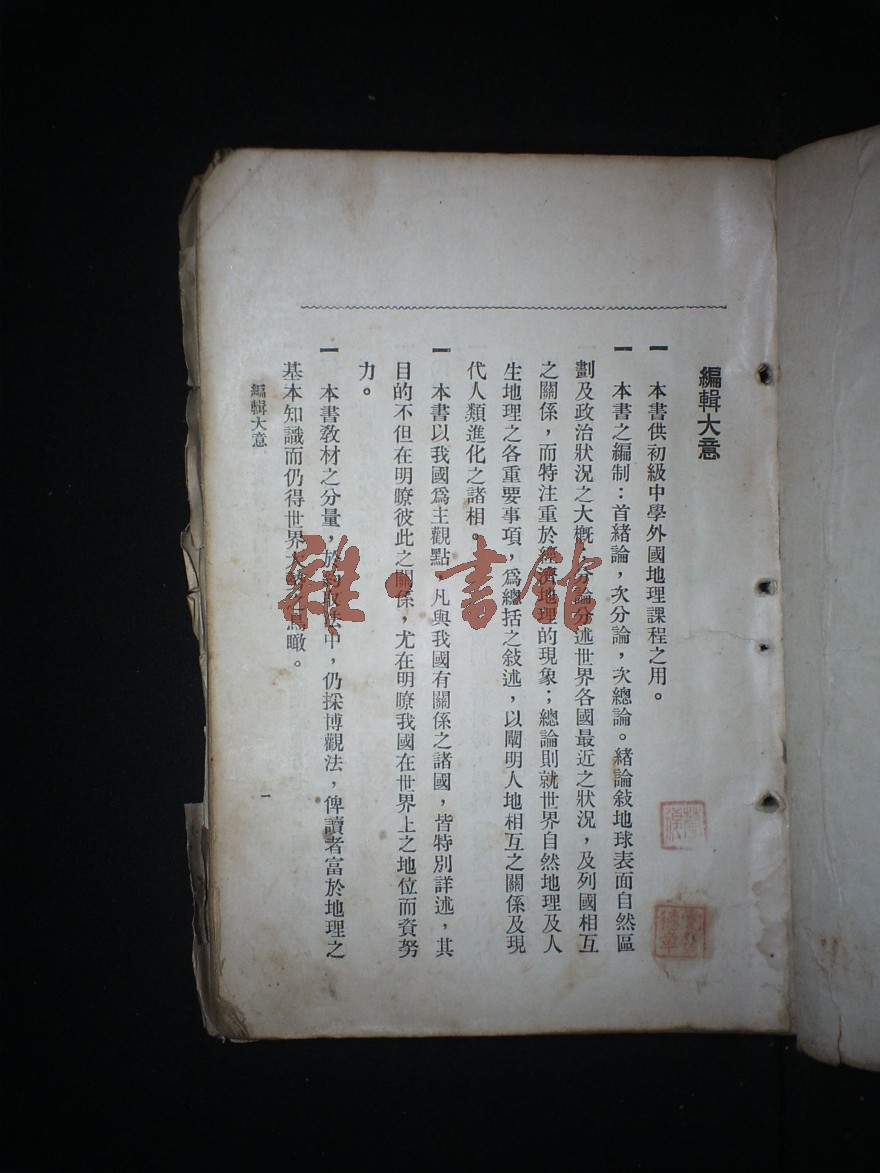 編輯大意
一 本書供初級中學外國地理課程之用。
一 本書之編制：首緒論，次分論，次總論。緒論敍地球表面自然區
劃及政治狀況之大概；分論分述世界各國最近之狀況，及列國相互
之關係，而特注重於經濟地理的現象；總論則就世界自然地理及人
生地理之各重要事項，爲總括之敍述，以闡明人地相互之關係及現
代人類進化之諸相。
一 本書以我國爲主觀點，凡與我國有關係之諸國，皆特別詳述，其
目的不但在明瞭彼此之關係，尤在明瞭我國在世界上之地位而資努
力。
一 本書教材之分量，於法中，仍採博觀法，俾讀者富於地理之
基本知識而仍得世界大瞰。
編輯大意
一
雜·書館